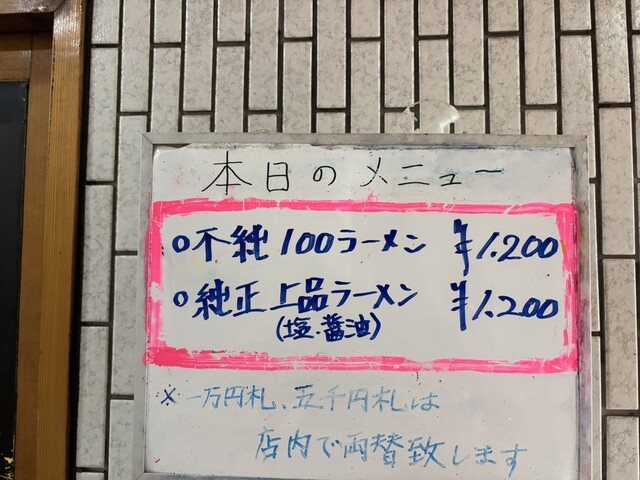 本日のメニュー
○不純100ラーメン ¥1.200
○純正上品ラーメン ¥1.200
(塩・醤油)
※一万円札、五千円札は
店内で両替致します